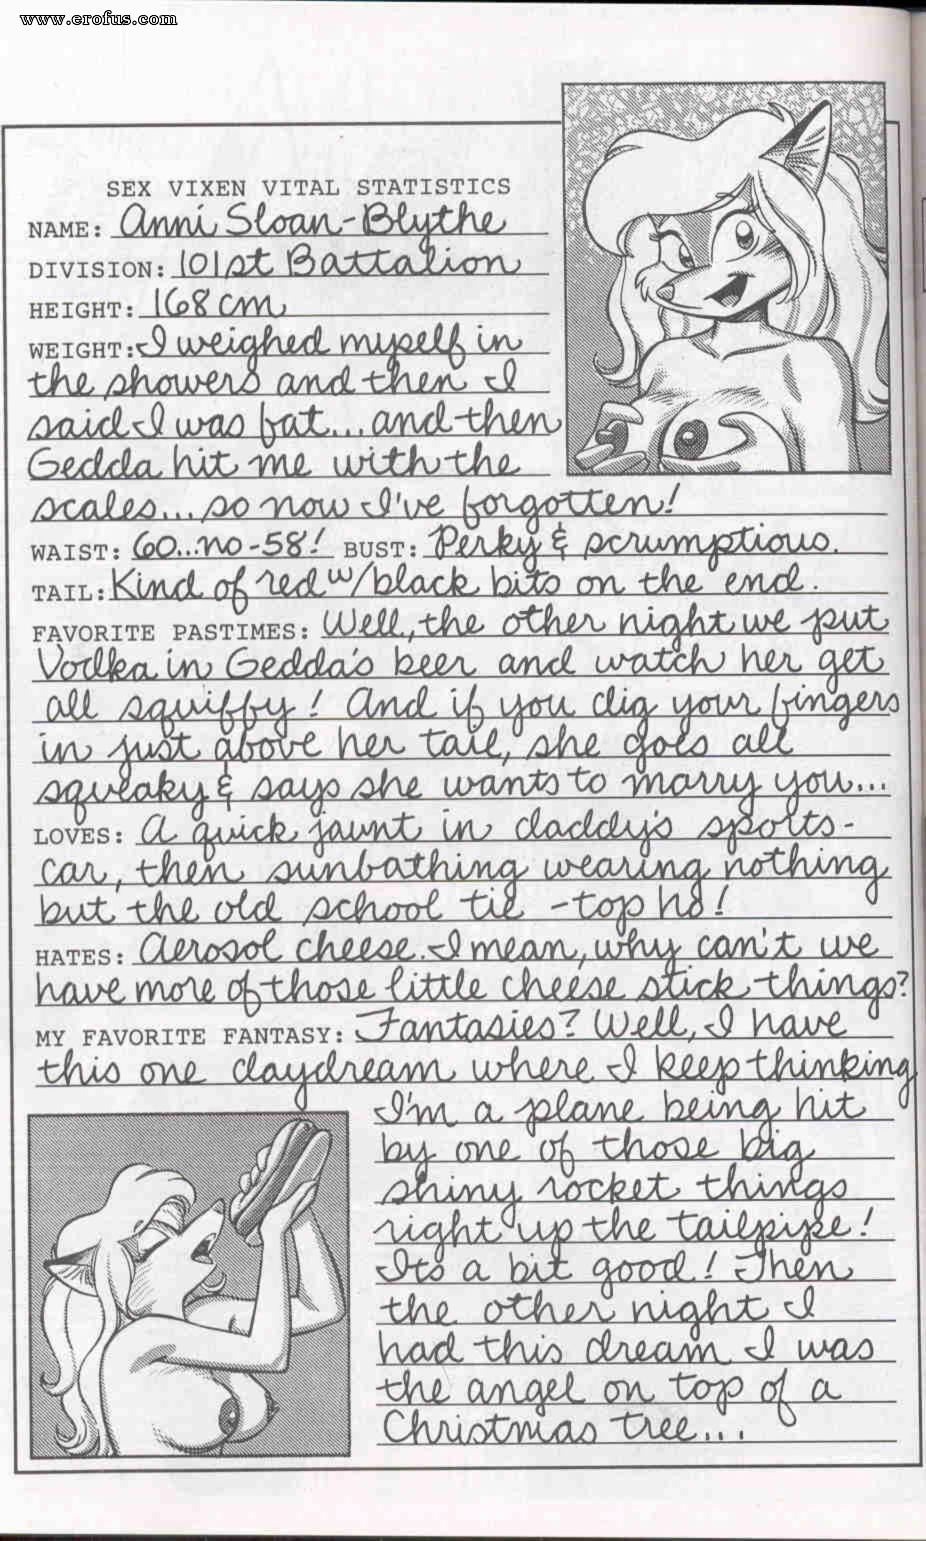 www.erofus.com
SEX VIXEN VITAL STATISTICS
NAME: Anni Sloan-Blythe
DIVISION: 101st Battalion
HEIGHT: 168cm
WEIGHT: I weighed myself in
the showers and then I
said I was fat... and then
Gedda hit me with the
scales... so now I've forgotten!
WAIST: 60...no-58! BUST: Perky & scrumptious.
TAIL: Kind of red w/black bits on the end.
FAVORITE PASTIMES: Well, the other night we put
Vodka in Gedda's beer and watch her get
all squiffy! And if you dig your fingers
in just above her tail, she goes all
squeaky & says she wants to marry you...
LOVES: A quick jaunt in daddy's sports-
car, then sunbathing wearing nothing
but the old school tie - top ho!
HATES: Aerosol cheese. I mean, why can't we
have more of those little cheese stick things?
MY FAVORITE FANTASY: Fantasies? Well, I have
this one daydream where I keep thinking
I'm a plane being hit
by one of those big
shiny rocket things
right up the tailpipe!
Its a bit good! Then
the other night I
had this dream I was
the angel on top of a
Christmas tree...